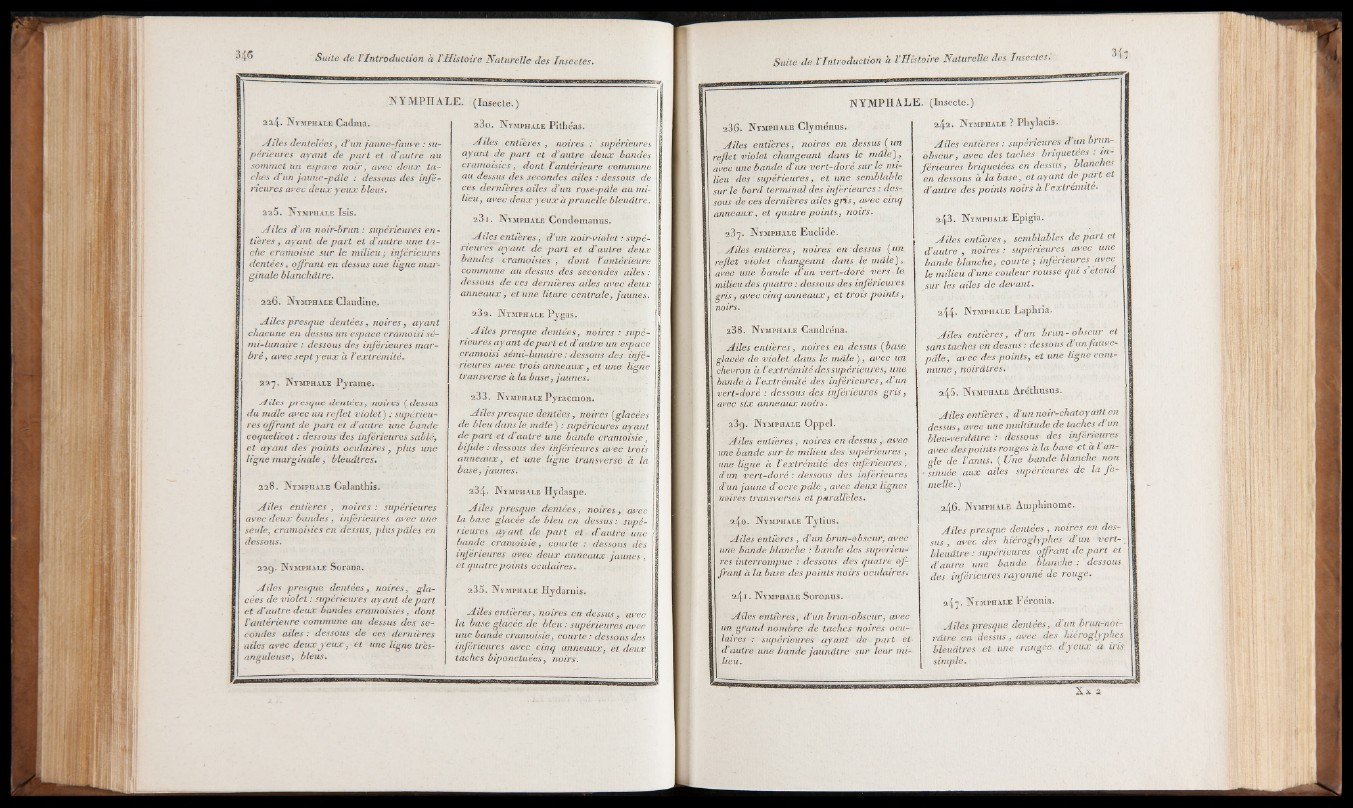 346
Suite de l'Introduction à l'Histoire Naturelle des Insectes.
NYMPHALE. (Insecte.)
224. Nymphale Cadma.
Ailes dentelées, d'un jaune-fauve : su-
périeures ayant de part et d'autre au
sommet un espace noir, avec deux ta-
ches d'un jaune-pâle : dessous des infé-
rieures avec deux yeux bleus.
225. Nymphale Isis.
Ailes d'un noir-brun : supérieures en-
tières, ayant de part et d'autre une ta-
che cramoisie sur le milieu ; inférieures
dentées, offrant en dessus une ligne mar-
ginale blanchâtre.
226. Nymphale Claudine.
Ailes presque dentées, noires, ayant
chacune en dessus un espace cramoisi sé-
mi-lunaire : dessous des inférieures mar-
bré, avec sept yeux à l'extrémité.
227. Nymphale Pyrame.
Ailes presque dentées, noires (dessus
du mâle avec un reflet violet) : supérieu-
res offrant de part et d'autre une bande
coquelicot : dessous des inférieures sablé,
et ayant des points oculaires, plus une
ligne marginale, bleuâtres.
228. Nymphale Galanthis.
Ailes entières, noires : supérieures
avec deux bandes, inférieures avec une
seule, cramoisies en dessus, plus pâles en
dessous.
229. Nymphale Sorana.
Ailes presque dentées, noires, gla-
cées de violet : supérieures ayant de part
et d'autre deux bandes cramoisies, dont
l'antérieure commune au dessus des se-
condes ailes : dessous de ces dernières
ailes avec deux yeux, et une ligne très-
anguleuse, bleus.
230. Nymphale Pithéas.
Ailes entières, noires : supérieures
ayant de part et d'autre deux bandes
cramoisies, dont l'antérieure commune
au dessus des secondes ailes : dessous de
ces dernières ailes d'un rose-pâle au mi-
lieu, avec deux yeux à prunelle bleuâtre.
231. Nymphale Condomanus.
Ailes entières, d'un noir-violet : supé-
rieures ayant de part et d'autre deux
bandes cramoisies, dont l'antérieure
commune au dessus des secondes ailes :
dessous de ces dernières ailes avec deux
anneaux, et une liture centrale, jaunes.
232. Nymphale Pygas.
Ailes presque dentées, noires : supé-
rieures ayant de part et d'autre un espace
cramoisi sémi-lunaire : dessous des infé-
rieures avec trois anneaux, et une ligne
transverse à la base, jaunes.
233. Nymphale Pyracmon.
Ailes presque dentées, noires (glacées
de bleu dans le mâle) : supérieures ayant
de part et d'autre une bande cramoisie,
bifide : dessous des inférieures avec trois
anneaux, et une ligne transverse à la
base, jaunes.
234. Nymphale Hydaspe.
Ailes presque dentées, noires, avec
la base glacée de bleu en dessus : supé-
rieures ayant de part et d'autre une
bande cramoisie, courte : dessous des
inférieures avec deux anneaux jaunes,
et quatre points oculaires.
235. Nymphale Hydarnis.
Ailes entières, noires en dessus, avec
la base glacée de bleu : supérieures avec
une bande cramoisie, courte : dessous des
inférieures avec cinq anneaux, et deux
taches biponctuées, noirs.
Suite de l'Introduction à l'Histoire Naturelle des Insectes.
347
NYMPHALE. (Insecte.)
236. Nymphale Clyménus.
Ailes entières, noires en dessus (un
reflet violet changeant dans le mâle),
avec une bande d'un vert-doré sur le mi-
lieu des supérieures, et une semblable
sur le bord terminal des inférieures : des-
sous de ces dernières ailes gris, avec cinq
anneaux, et quatre points, noirs.
237. Nymphale Euclide.
Ailes entières, noires en dessus (un
reflet violet changeant dans le mâle),
avec une bande d'un vert-doré vers le
milieu des quatre : dessous des inférieures
gris, avec cinq anneaux, et trois points,
noirs.
238. Nymphale Candréna.
Ailes entières, noires en dessus (base
glacée de violet dans le mâle), avec un
chevron à l'extrémité des supérieures, une
bande à l'extrémité des inférieures, d'un
vert-doré : dessous des inférieures gris,
avec six anneaux noirs.
239. Nymphale Oppel.
Ailes entières, noires en dessus, avec
une bande sur le milieu des supérieures,
une ligne à l'extrémité des inférieures,
d'un vert-doré : dessous des inférieures
d'un jaune d'ocre pâle, avec deux lignes
noires transverses et parallèles.
240. Nymphale Tytius.
Ailes entières, d'un brun-obscur, avec
une bande blanche : bande des supérieu-
res interrompue : dessous des quatre of-
frant à la base des points noirs oculaires.
241. Nymphale Soronus.
Ailes entières, d'un brun-obscur, avec
un grand nombre de taches noires ocu-
laires : supérieures ayant de part et
d'autre une bande jaunâtre sur leur mi-
lieu.
242. Nymphale ? Phylacis.
Ailes entières : supérieures d'un brun-
obscur, avec des taches briquetées : in-
férieures briquetées en dessus, blanches
en dessous à la base, et ayant de part et
d'autre des points noirs à l'extrémité.
243. Nymphale Epigia.
Ailes entières, semblables de part et
d'autre, noires : supérieures avec une
bande blanche, courte ; inférieures avec
le milieu d'une couleur rousse qui s'étend
sur les ailes de devant.
244. Nymphale Laphria.
Ailes entières, d'un brun-obscur et
sans taches en dessus : dessous d'un fauve-
pâle, avec des points, et une ligne com-
mune, noirâtres.
245. Nymphale Aréthusus.
Ailes entières, d'un noir-chatoyant en
dessus, avec une multitude de taches d'un
bleu-verdâtre : dessous des inférieures
avec des points rouges à la base et à l'an-
gle de l'anus. (Une bande blanche non
sinuée aux ailes supérieures de la fe-
melle.)
246. Nymphale Amphinome.
Ailes presque dentées, noires en des-
sus, avec des hiéroglyphes d'un vert-
bleuâtre : supérieures offrant de part et
d'autre une bande blanche : dessous
des inférieures rayonné de rouge.
247. Nymphale Féronia.
Ailes presque dentées, d'un brun-noi-
râtre en dessus, avec des hiéroglyphes
bleuâtres et une rangée d'yeux à iris
simple.
Xx 2